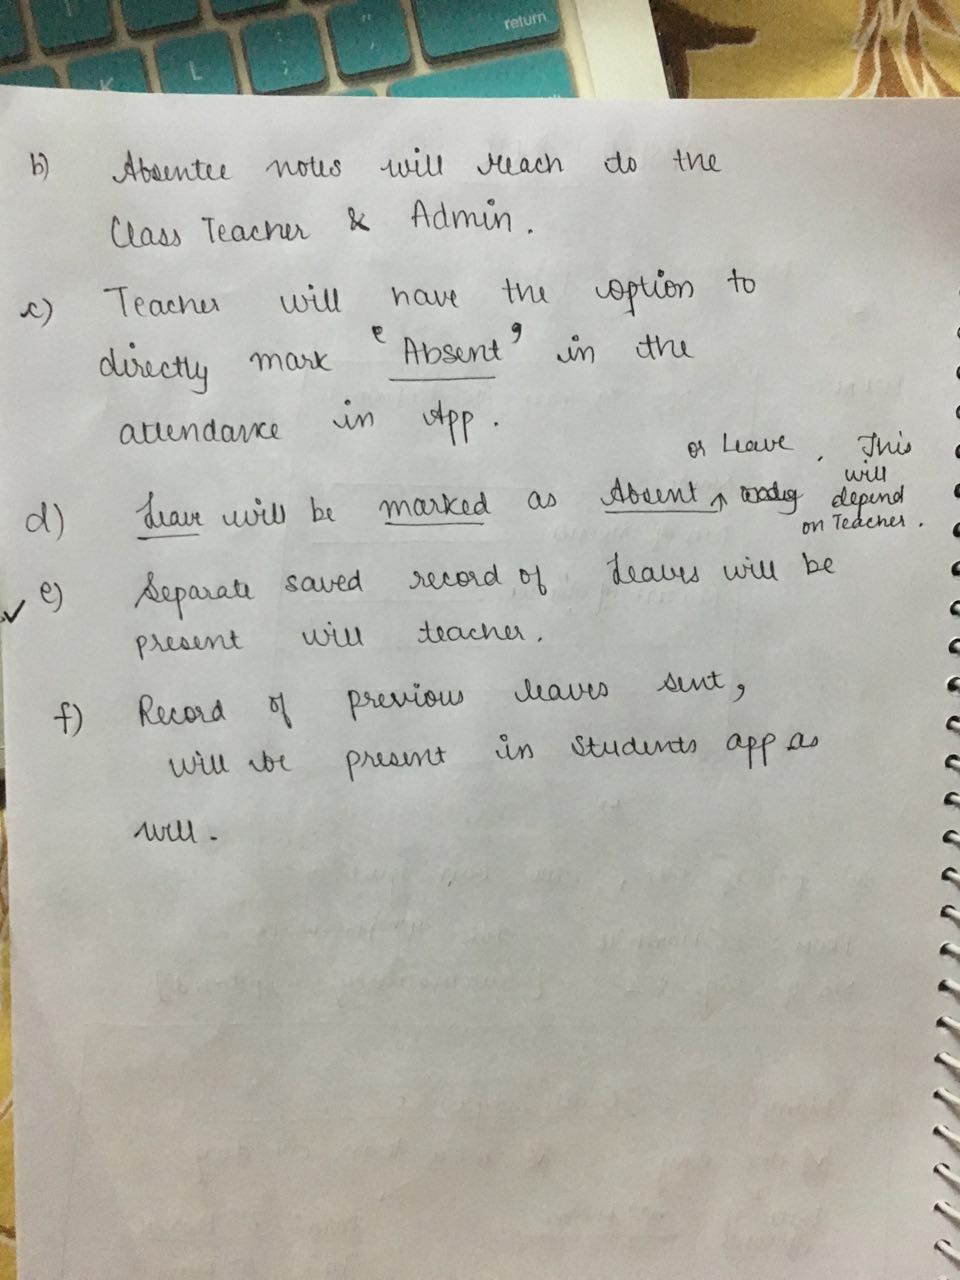 return
K L ; : " '
b) Absentee notes will reach do the
Class Teacher & Admin.
c) Teacher will have the option to
directly mark ‘Absent’ in the
attendance in App.
or Leave . This
will
d) Leave will be marked as Absent ↑ depend
on Teacher.
e) Separate saved record of leaves will be
present will teacher.
f) Record of previous leaves sent,
will be present in students app as
will.